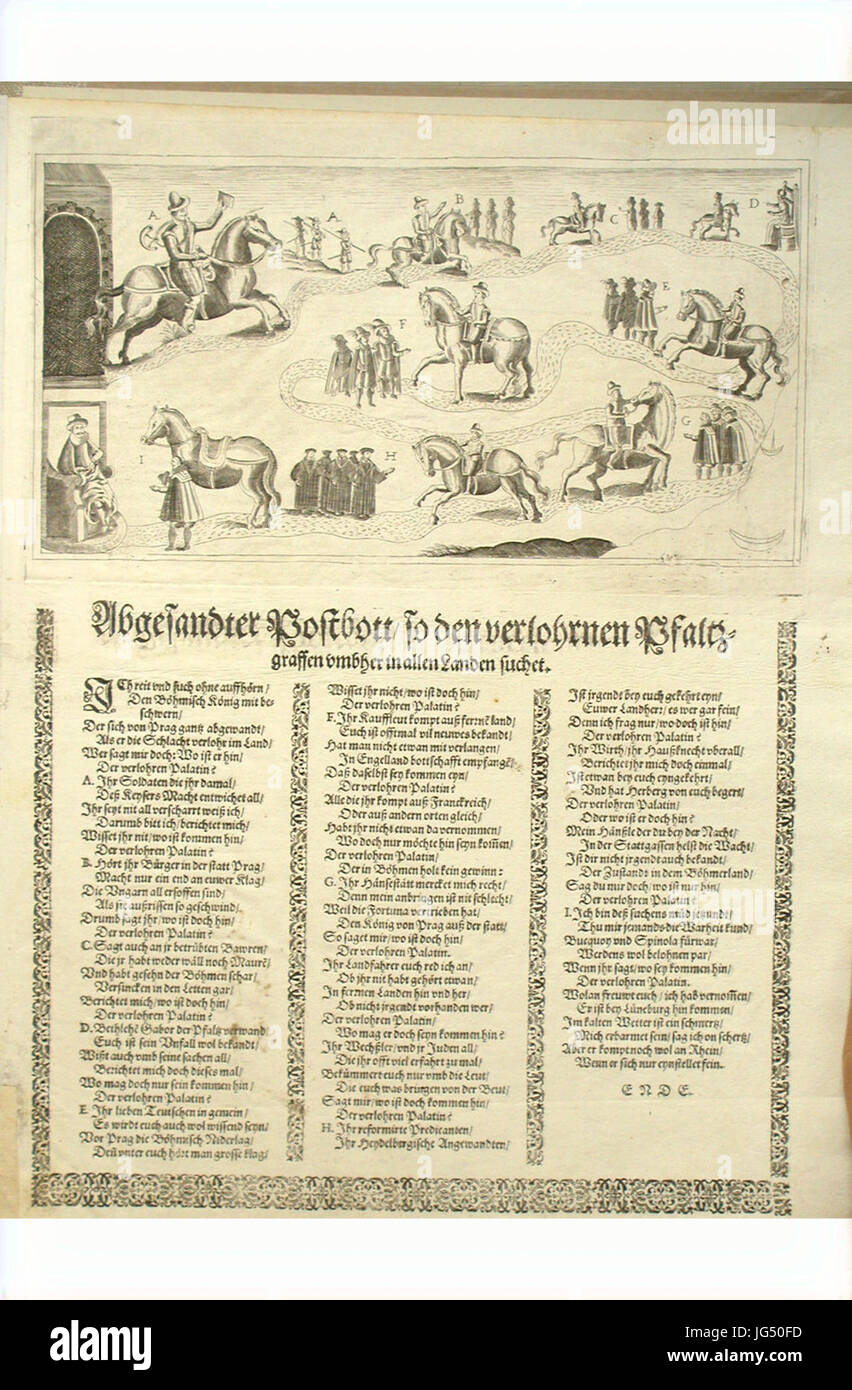 A
A
B
C
D
E
F
G
H
I
Abgesandter Postbott/ so den verlohrnen Pfaltz-
graffen vmbher in allen Landen suchet.
ICh reit vnd such ohne auffhörn/
Den Böhmisch König mit be-
schwern/
Der sich von Prag gantz abgewandt/
Als er die Schlacht verlohr im Land/
Wer sagt mir doch: Wo ist er hin/
Der verlohren Palatin?
A. Ihr Soldaten die jhr damal/
Deß Keysers Macht entwichet all/
Ihr seyt nit all verscharrt weiß ich/
Darumb bitt ich/ berichtet mich/
Wisset jhr nit/ wo ist kommen hin/
Der verlohren Palatin?
B. Hört jhr Bürger in der statt Prag/
Macht nur ein end an ewer Klag/
Die Vngarn all ersoffen sind/
Als sie außrissen so geschwind/
Drumb sagt jhr/ wo ist doch hin/
Der verlohren Palatin?
C. Sagt auch an jr betrübten Bawren/
Die jr habt weder wäll noch Maurē/
Vnd habt gesehn der Böhmen schar/
Versincken in den Letten gar/
Berichtet mich/ wo ist doch hin/
Der verlohren Palatin?
D. Bethlehē Gabor der Pfaltz verwand
Euch ist sein Vnfall wol bekandt/
Wißt auch vmb seine sachen all/
Berichtet mich doch dieses mal/
Wo mag doch nur sein kommen hin/
Der verlohren Palatin?
E. Ihr lieben Teutschen in gemein/
Es wirdt euch auch wol wissend seyn/
Vor Prag die Böhmisch Niderlag/
Deñ vnter euch hört man grosse klag/
Wisset jhr nicht/ wo ist doch hin/
Der verlohren Palatin?
F. Ihr Kauffleut kompt auß fernē land/
Euch ist offtmal vil neuwes bekandt/
Hat man nicht etwan mit verlangen/
In Engelland bottschafft empfangē/
Daß daselbst sey kommen eyn/
Der verlohren Palatin?
Alle die jhr kompt auß Franckreich/
Oder auß andern orten gleich/
Habt jhr nicht etwan da vernommen/
Wo doch nur möchte hin seyn kom̃en/
Der verlohren Palatin/
Der in Böhmen holt kein gewinn:
G. Ihr Hänsestätt mercket mich recht/
Denn mein anbringen ist nit schlecht/
Weil die Fortuna vertrieben hat/
Den König von Prag auß der statt/
So saget mir/ wo ist doch hin/
Der verlohren Palatin.
Ihr Landfahrer euch red ich an/
Ob jhr nit habt gehört etwan/
In fernen Landen hin vnd her/
Ob nicht jrgendt vorhanden wer/
Der verlohren Palatin/
Wo mag er doch seyn kommen hin?
Ihr Wechßler/ vnd jr Juden all/
Die jhr offt viel erfahrt zu mal/
Bekümmert euch nur vmb die Leut/
Die euch was bringen von der Beut/
Sagt mir/ wo ist doch kommen hin/
Der verlohren Palatin?
H. Ihr reformirte Predicanten/
Ihr Heydelbergische Angewandten/
Ist jrgendt bey euch gekehrt eyn/
Euwer Landherr/ es wer gar fein/
Denn ich frag nur/ wo doch ist hin/
Der verlohren Palatin?
Ihr Wirth/ jhr Haußknecht vberall/
Berichtet jhr mich doch einmal/
Ist etwan bey euch eyngekehrt/
Vnd hat Herberg von euch begert/
Der verlohren Palatin/
Oder wo ist er doch hin?
Mein Hänßle der du bey der Nacht/
In der Stattgassen helst die Wacht/
Ist dir nicht jrgendt auch bekandt/
Der Zustandt in dem Böhmerland/
Sag du nur doch/ wo ist nur hin/
Der verlohren Palatin?
I. Ich bin deß suchens müd jetzund/
Thu mir jemands die Warheit kund/
Bucquoy vnd Spinola fürwar/
Werdens wol belohnen par/
Wenn jhr sagt/ wo sey kommen hin/
Der verlohren Palatin.
Wolan frewt euch/ ich hab vernom̃en/
Er ist bey Lüneburg hin kommen/
Im kalten Wetter ist ein schmertz/
Mich erbarmet sein/ sag ich on schertz/
Aber er kompt noch wol an Rhein/
Wenn er sich nur eynstellet fein.
E N D E.
alamy
alamy stock photo
JG50FD
www.alamy.com